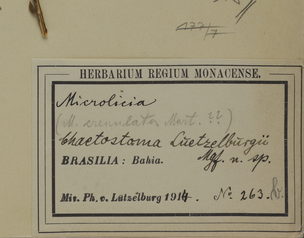 177/7
HERBARIUM REGIUM MONACENSE.
Microlicia
(M. crenulata Mart. ??)
Chaetostoma Luetzelburgii
BRASILIA: Bahia. Mgf. n. sp.
Mis. Ph. v. Lützelburg 1914. No. 263.